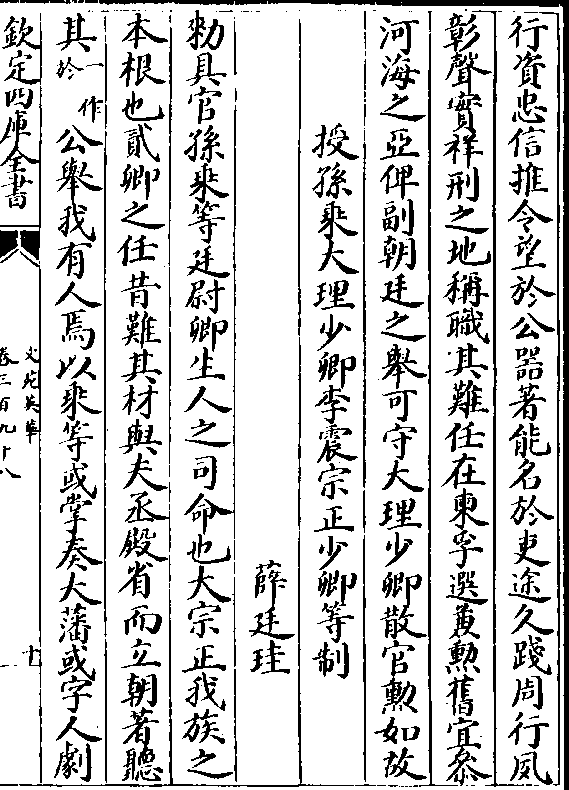 行資忠信推令望於公器著能名於吏途久踐周行夙
彰聲實祥刑之地稱職其難任在東字選兼勲舊宜叅
河海之亞俾副朝廷之舉可守大理少卿散官勲如故
授孫乘大理少卿李震宗正少卿等制
薛廷珪
勑具官孫乘等廷尉卿生人之司命也大宗正我族之
本根也貳卿之任昔難其材與夫丞殿省而立朝著聽
其一作於公舉我有人焉以乘等或掌奏大藩或字人劇
欽定四庫全書
文苑英華
卷三百九十八
十一